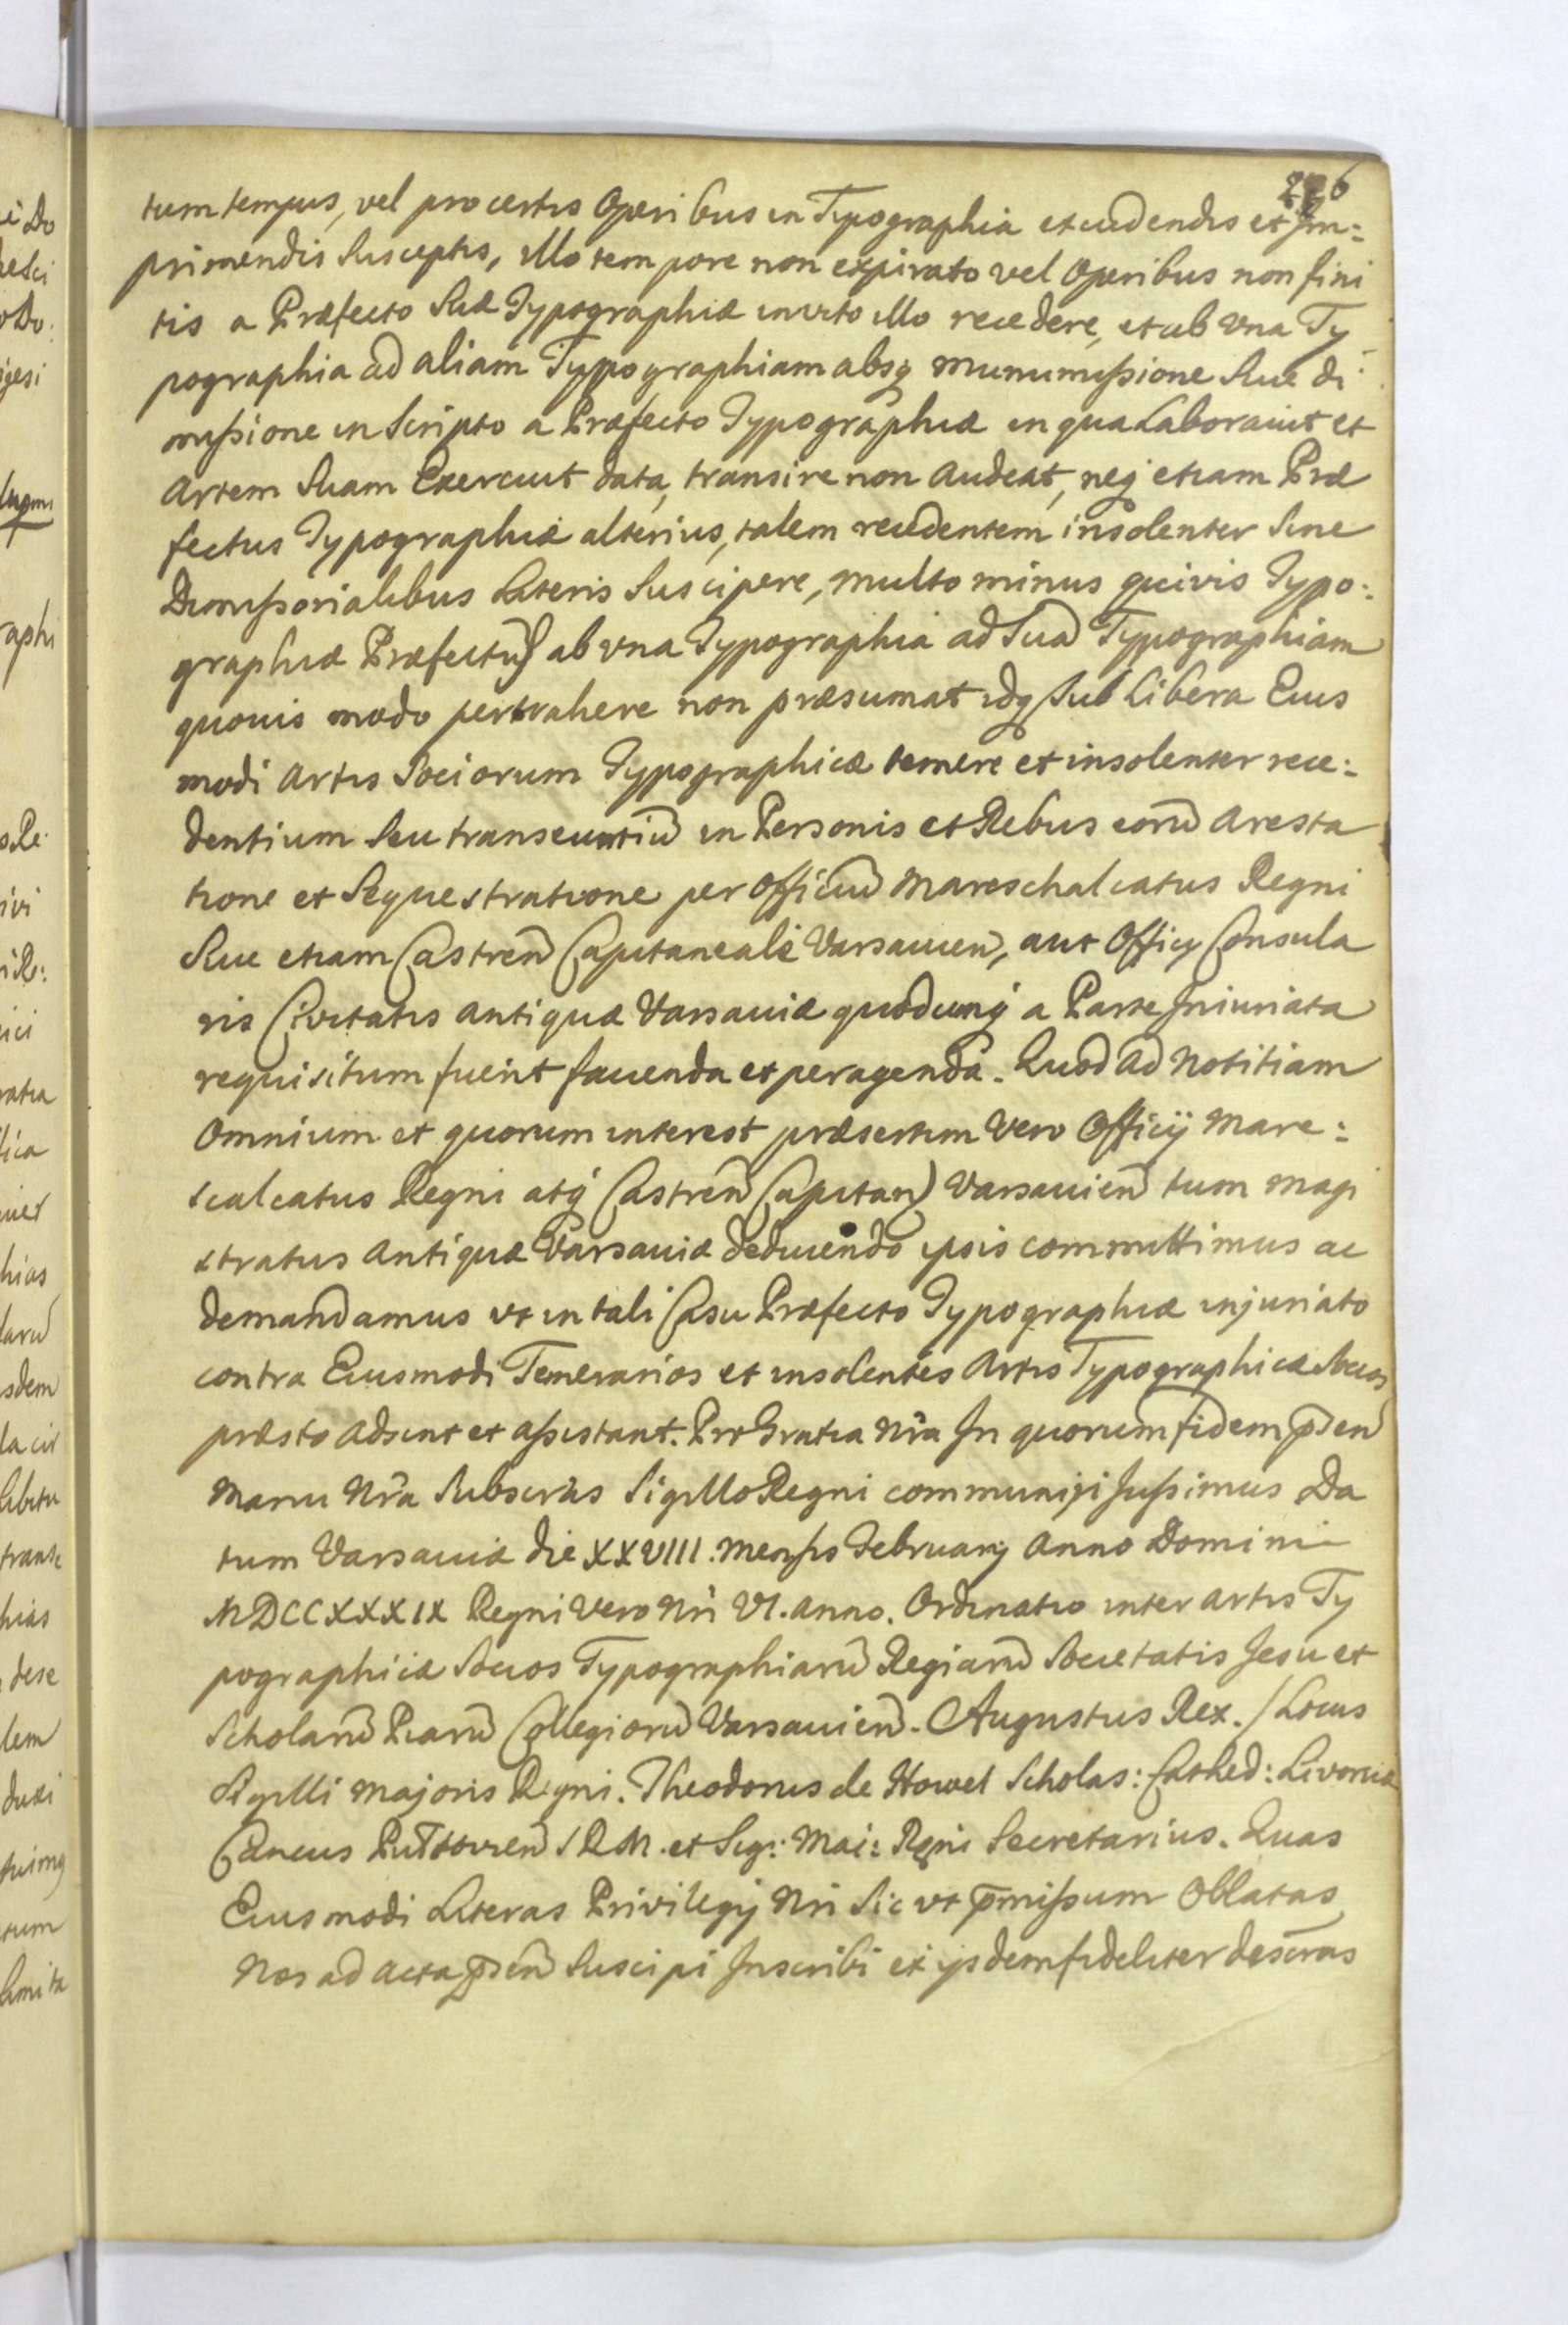 226
tum tempus, vel pro certis Operibus in Typographia excudendis et Im:
primendis Susceptis, illo tempore non expirato vel Operibus non fini
tis a Præfecto Suæ Typographiæ invito illo recedere, et ab Una Ty
pographia ad aliam Typographiam absq manumissione Sive di
missione in Scripto a Præfecto Typographiæ in qua Laboravit et
Artem Suam Exercuit data, transire non Audeat, neq etiam Præ
fectus Typographiæ alterius, talem recedentem insolenter Sine
Dimissorialibus Literis Suscipere, multo minus quivis Typo:
graphiæ Præfectus ab una Typographia ad Suã Typographiam
quovis modo pertrahere non præsumat idq sub libera Eius
modi Artis Sociorum Typographicæ temere et insolenter rece:
dentium Seu transeuntiũ in Personis et Rebus eorũ Aresta
tione et Sequestratione per Officiũ Mareschalcatus Regni
Sive etiam Castreñ Capitaneale Varsavieñ, aut Officij Consula
ris Civitatis Antiquæ Varsaviæ quodcunq a Parte Iniuriata
requisitum fuerit favenda et peragenda. Quod ad Notitiam
Omnium et quorum interest præsertim Vero Officij Mare:
scalcatus Regni atq Castreñ Capitan) Varsavieñ tum Magi
stratus Antiquæ Varsaviæ deducendo ipsis committimus ac
demandamus ut in tali Casu Præfecto Typographiæ injuriato
contra Eiusmodi Temerarios et insolentes Artis Typographicæ Socios
præsto Adsint et Assistant. Pro Gratia Nrã In quorum fidem p̄señ
Manu Nrã Subscr̃as Sigillo Regni communiri Jussimus Da
tum Varsaviæ die XXVIII. Mensis Februarij Anno Domini
MDCCXXXIX Regni Vero Nrĩ VI. Anno. Ordinatio inter Artis Ty
pographicæ Socios Typographiarũ Regiarũ Societatis Jesu et
Scholarũ Piarũ Collegiorũ Varsavieñ. Augustus Rex. / Locus
Sigilli Majoris Regni. Theodorus de Howel Scholas: Cathed: Livoniæ
Cancus Pultovieñ S R M. et Sig: Mai: Regni Secretarius. Quas
Eiusmodi Literas Privilegij Nri Sic ut p̄missum Oblatas
Nos ad Acta p̄señ Suscipi Inscribi ex ijsdem fideliter descr̃as